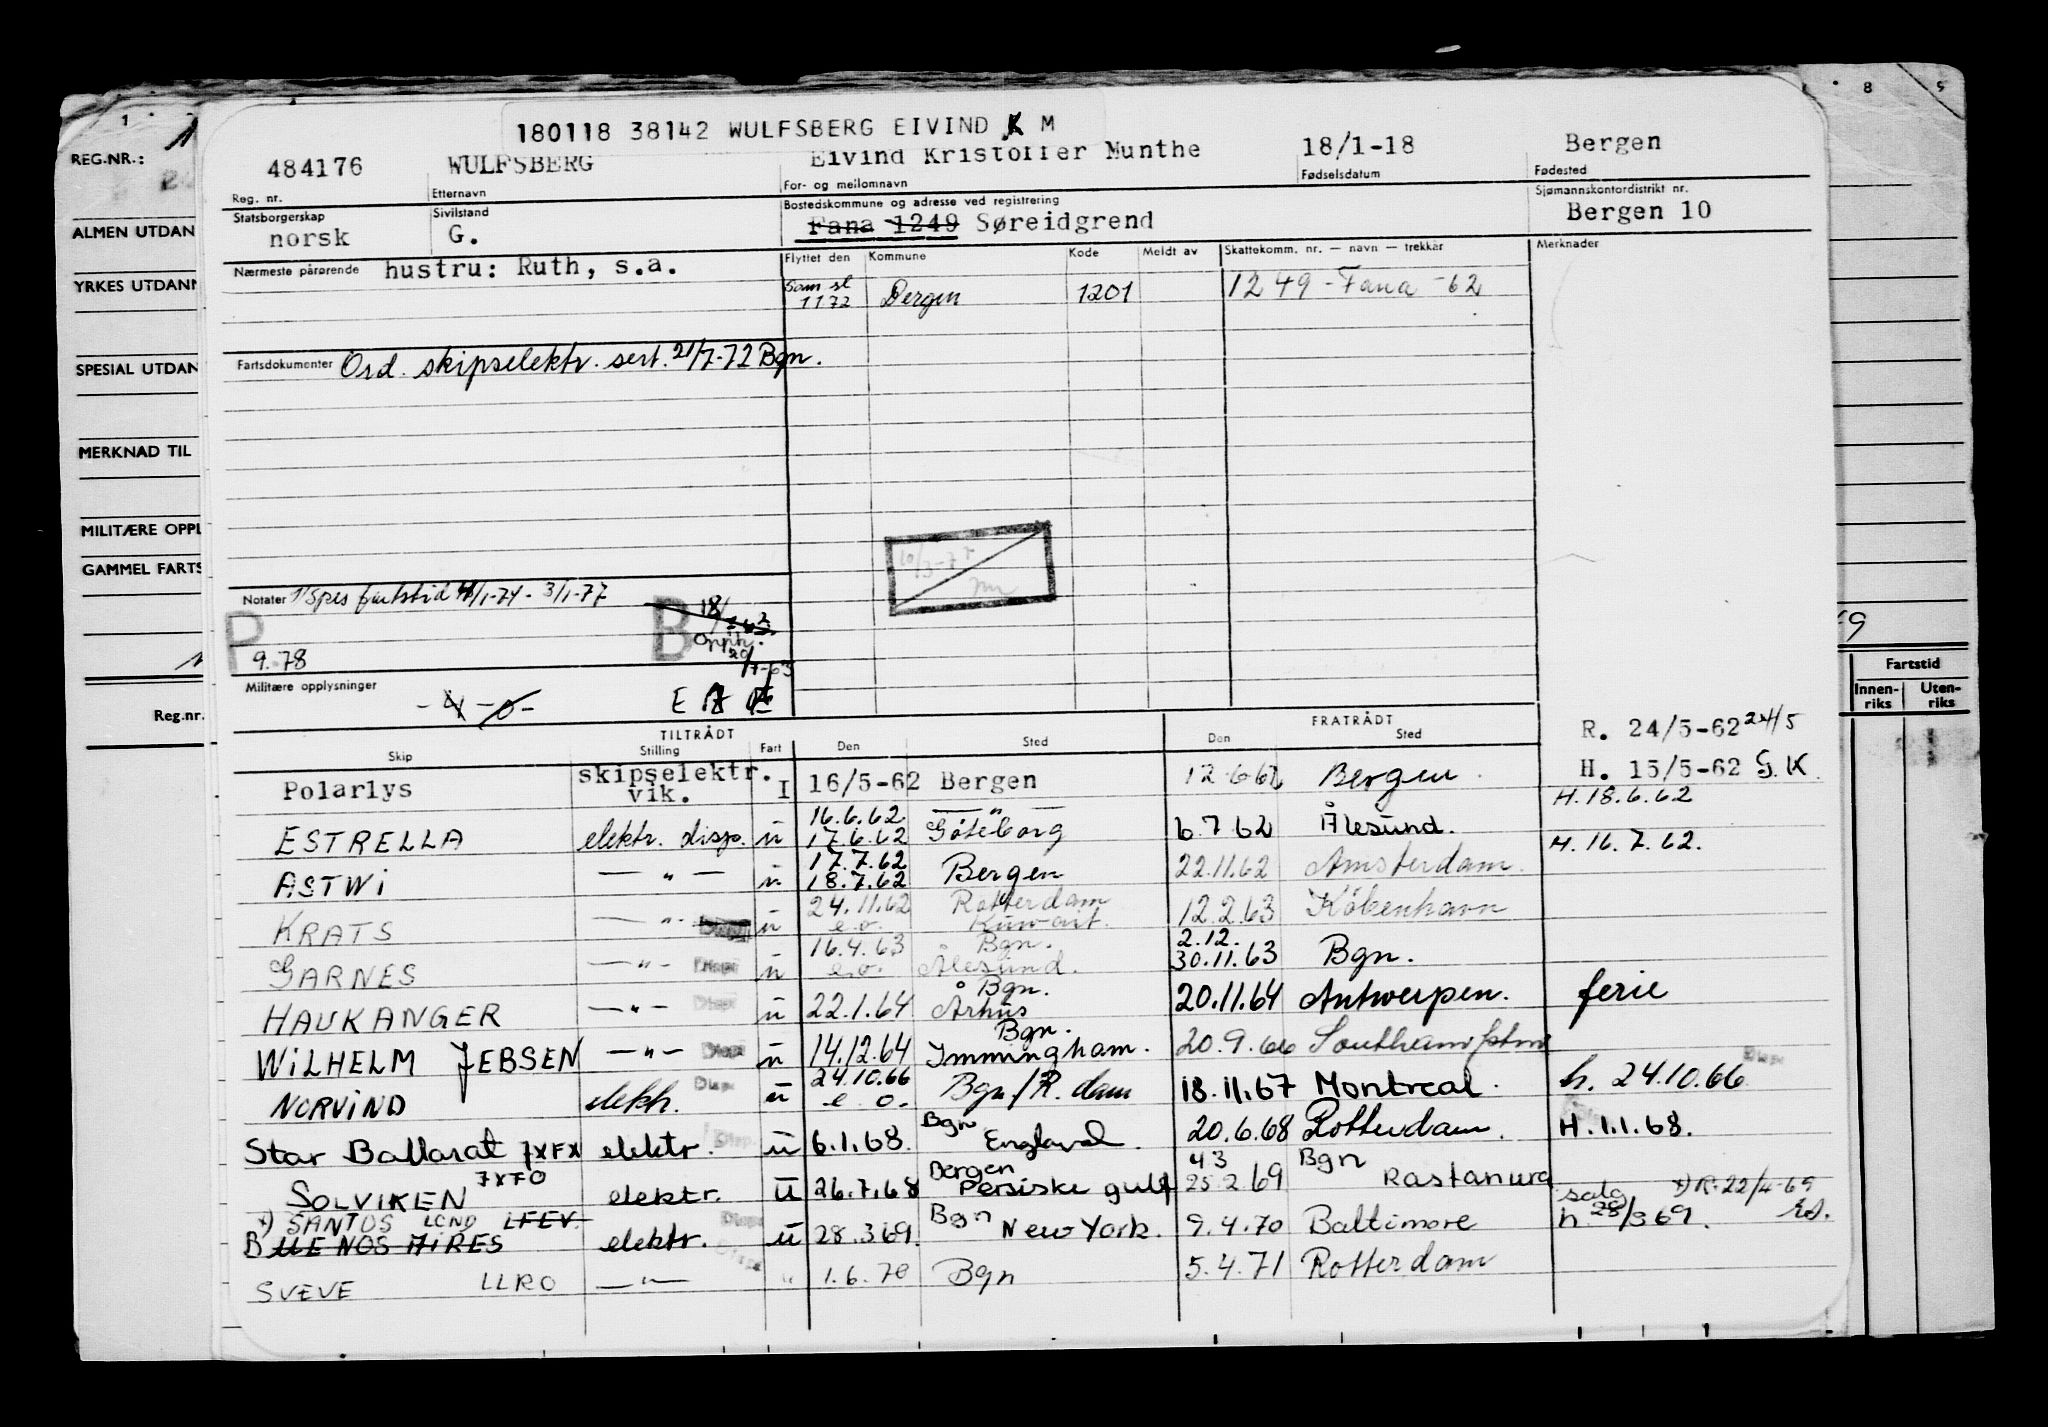 1 8 9
180118 38142 WULFSBERG EIVIND K M
REG.NR.: 484176 WULFSBERG Eivind Kristoffer Munthe 18/1-18 Bergen
Reg. nr. Etternavn For- og mellomnavn Fødselsdatum Fødested
Statsborgerskap Sivilstand Bostedskommune og adresse ved registrering Sjømannskontordistrikt nr.
ALMEN UTDAN norsk G. Fana 1249 Søreidgrend Bergen 10
Nærmeste pårørende hustru: Ruth, s.a. Flyttet den Kommune Kode Meldt av Skattekomm. nr. — navn — trekkår Merknader
YRKES UTDANN Som sl 1172 Bergen 1201 1249 - Fana - 62
SPESIAL UTDAN Fartsdokumenter Ord. skipselektr. sert. 21/7-72 Bgn.
MERKNAD TIL
MILITÆRE OPPL
GAMMEL FARTS
Notater 1/Spes fartstid 4/1-74 - 3/1-77
P 9.78 B 18/ Opph. 20/7-63
Militære opplysninger
Reg.nr. Fartstid
Innenriks Utenriks
TILTRÅDT FRATRÅDT
Skip Stilling Fart Den Sted Den Sted
R. 24/5-62 24/5
Polarlys skipselektr. vik. I 16/5-62 Bergen 12.6.62 Bergen. H. 15/5-62 G.K.
H. 18.6.62
ESTRELLA elektr. disp. u 16.6.62 17.6.62 — " — Göteborg 6.7.62 Ålesund. H. 16.7.62.
ASTWI — " — u 17.7.62 18.7.62 Bergen 22.11.62 Amsterdam.
KRATS — " — u 24.11.62 e.o. Rotterdam Kuwait. 12.2.63 København
GARNES — " — Disp u 16.4.63 e.o. Bgn. Ålesund. 2.12. 30.11.63 Bgn.
HAUKANGER — " — Disp u 22.1.64 Bgn. Århus 20.11.64 Antwerpen. ferie
WILHELM JEBSEN — " — Disp u 14.12.64 Bgn. Immingham. 20.9.66 Southampton
NORVIND elektr. Disp u 24.10.66 e.o. Bgn./R.dam 18.11.67 Montreal. h. 24.10.66 Disp
Star Ballarat JXFX elektr. Disp. u 6.1.68. Bgn England. 20.6.68 Rotterdam. H. 1.1.68.
SOLVIKEN JXFO elektr. u 26.7.68 Bergen Persiske gulf 43 25.2.69 Bgn Rastanura salg x) R. 22/4-69
x) SANTOS LCND LFEV.
BUENOS AIRES elektr. Disp u 28.3.69. Bgn New York. 9.4.70 Baltimore h 28/3 69.
SVEVE LLRO — " — Disp " 1.6.70 Bgn 5.4.71 Rotterdam